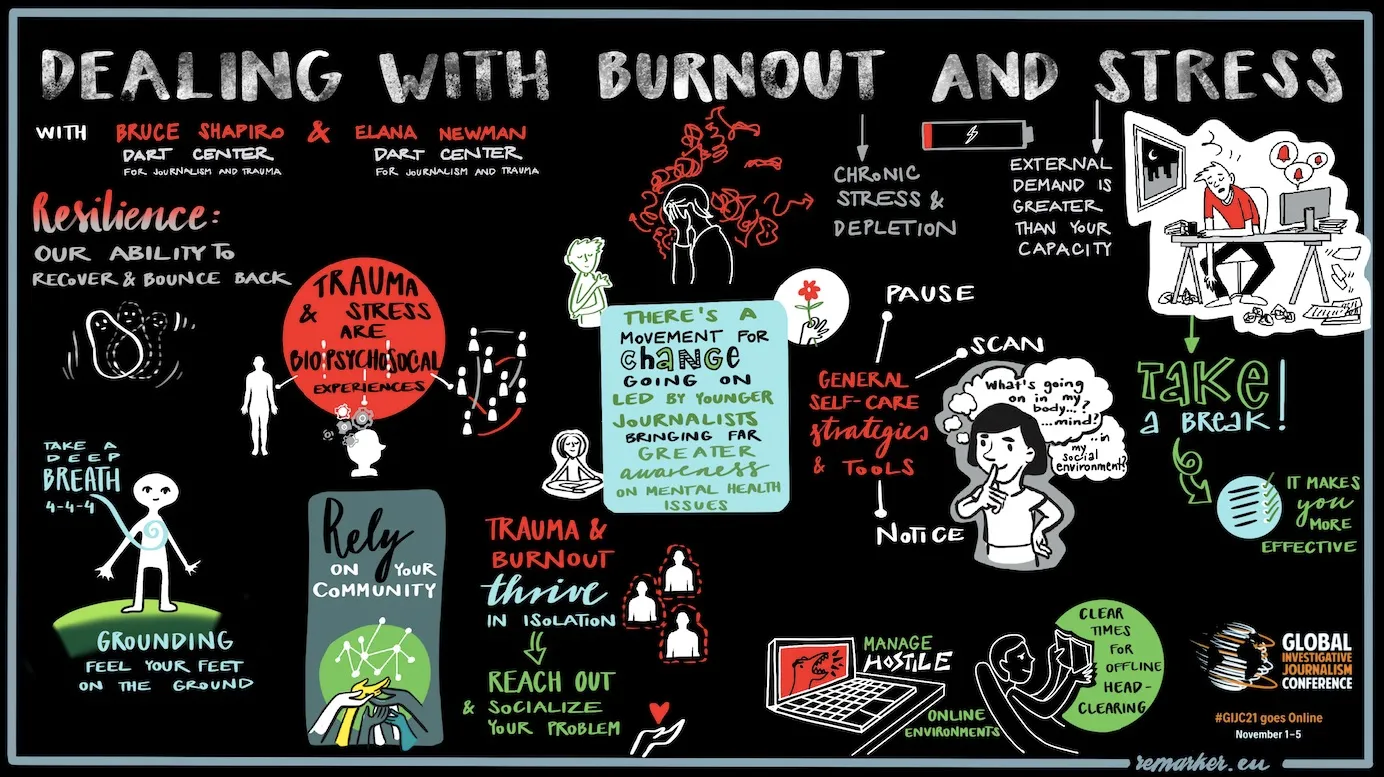 DEALING WITH BURNOUT AND STRESS
WITH BRUCE SHAPIRO & ELANA NEWMAN
DART CENTER
FOR JOURNALISM AND TRAUMA
DART CENTER
FOR JOURNALISM AND TRAUMA
Resilience:
OUR ABILITY TO
RECOVER & BOUNCE BACK
TRAUMA
& STRESS
ARE
BIOPSYCHOSOCIAL
EXPERIENCES
CHRONIC
STRESS &
DEPLETION
EXTERNAL
DEMAND IS
GREATER
THAN YOUR
CAPACITY
THERE'S A
MOVEMENT FOR
CHANGE
GOING ON
LED BY YOUNGER
JOURNALISTS
BRINGING FAR
GREATER
awareness
ON MENTAL HEALTH
ISSUES
PAUSE
SCAN
GENERAL
SELF-CARE
strategies
& TOOLS
NOTICE
What's going
on in my
body...?
...mind?
...in
my
social
environment?
TAKE
A BREAK!
IT MAKES
you
MORE
EFFECTIVE
TAKE A
DEEP
BREATH
4-4-4
GROUNDING
FEEL YOUR FEET
ON THE GROUND
Rely
ON YOUR
COMMUNITY
TRAUMA &
BURNOUT
thrive
IN ISOLATION
REACH OUT
& SOCIALIZE
YOUR PROBLEM
MANAGE
HOSTILE
ONLINE
ENVIRONMENTS
CLEAR
TIMES
FOR
OFFLINE
HEAD-
CLEARING
GLOBAL
INVESTIGATIVE
JOURNALISM
CONFERENCE
#GIJC21 goes Online
November 1-5
remarker.eu